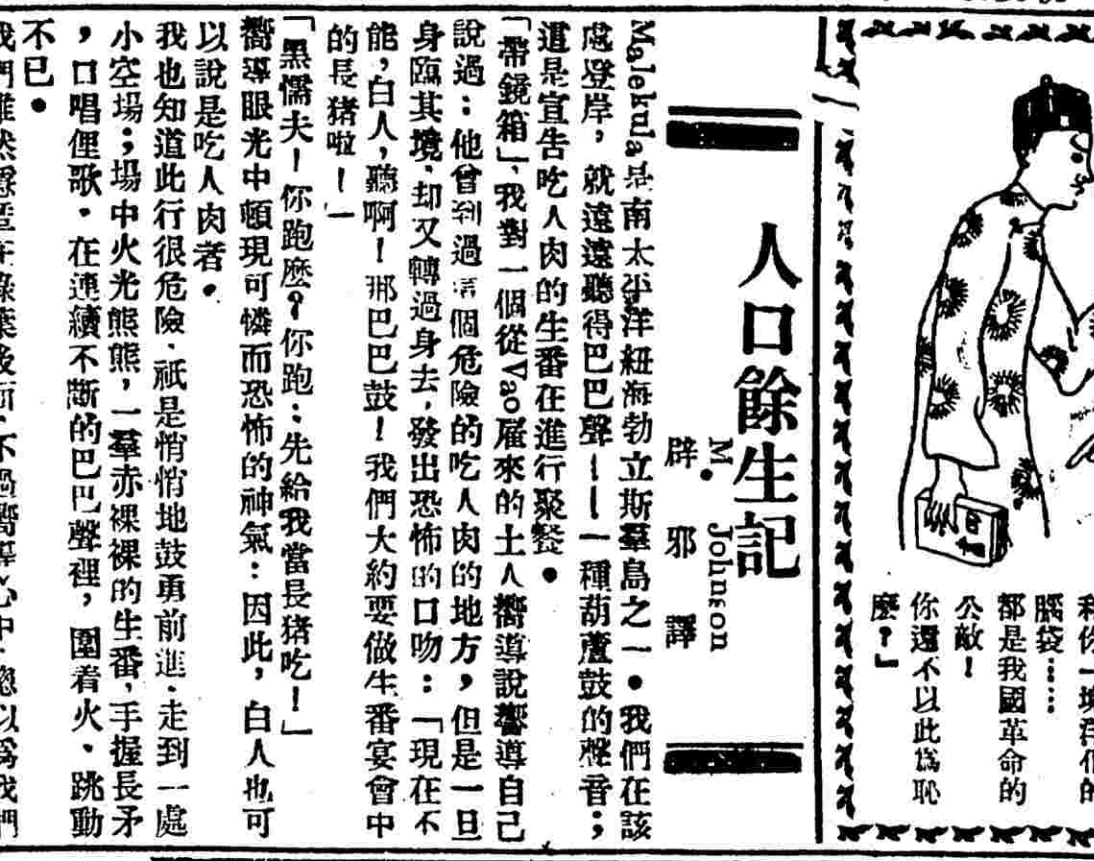 利你一塊洋
腦袋……
都是我國革命的
公敵!
你還不以此爲恥
麼?」
日
人口餘生記
M. Johnson
辟邪譯
Malekula是南太平洋紐海勃立斯羣島之一。我們在該
處登岸,就遠遠聽得巴巴聲——一種葫蘆鼓的聲音;
這是宣告吃人肉的生番在進行聚餐。
「帶鏡箱」,我對一個從Vao雇來的土人嚮導說嚮導自己
說過:他曾到過這個危險的吃人肉的地方,但是一旦
身臨其境,却又轉過身去,發出恐怖的口吻:「現在不
能,白人,聽啊!那巴巴鼓!我們大約要做生番宴會中
的長猪啦!」
「黑懦夫!你跑麼?你跑:先給我當長猪吃!」
嚮導眼光中頓現可憐而恐怖的神氣:因此,白人也可
以說是吃人肉者。
我也知道此行很危險,祇是悄悄地鼓勇前進,走到一處
小空場;場中火光熊熊,一羣赤裸裸的生番,手握長矛
,口唱俚歌。在連續不斷的巴巴聲裡,圍着火、跳動
不已。
我們雖然在綠葉後面,不過嚮導心中,總以爲我們